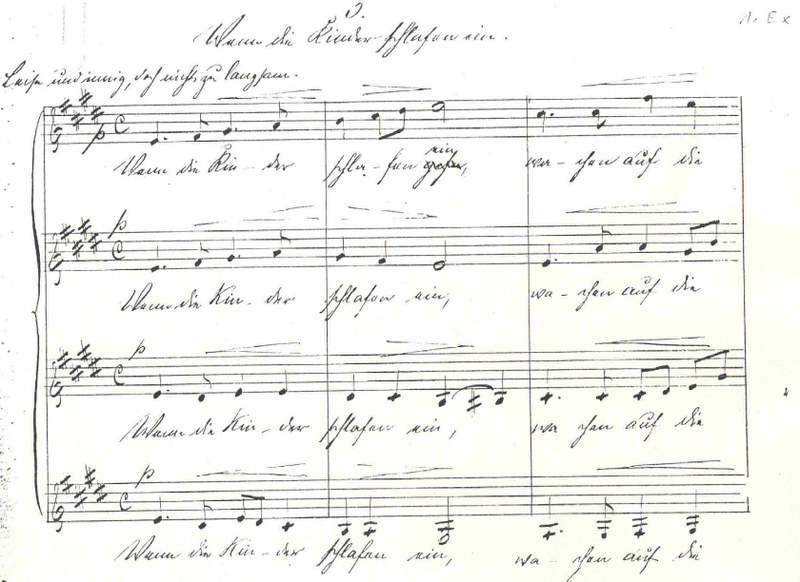 3.
Wenn die Kinder schlafen ein.
Leise und innig, doch nicht zu langsam.
p
Wenn die Kin – der schla – fen ein, wa – chen auf die
p
Wenn die Kin – der schlafen ein, wa – chen auf die
p
Wenn die Kin – der schlafen ein, wa chen auf die
p
Wenn die Kin – der schlafen ein, wa – chen auf die